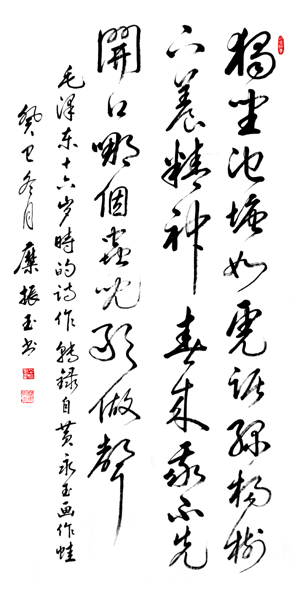 獨坐池塘如虎踞綠楊樹
下養精神春來我不先
開口哪個蟲兒敢做聲
毛澤东十六岁時的诗作 録自黄永玉画作蛙
癸巳冬月 糜振玉书